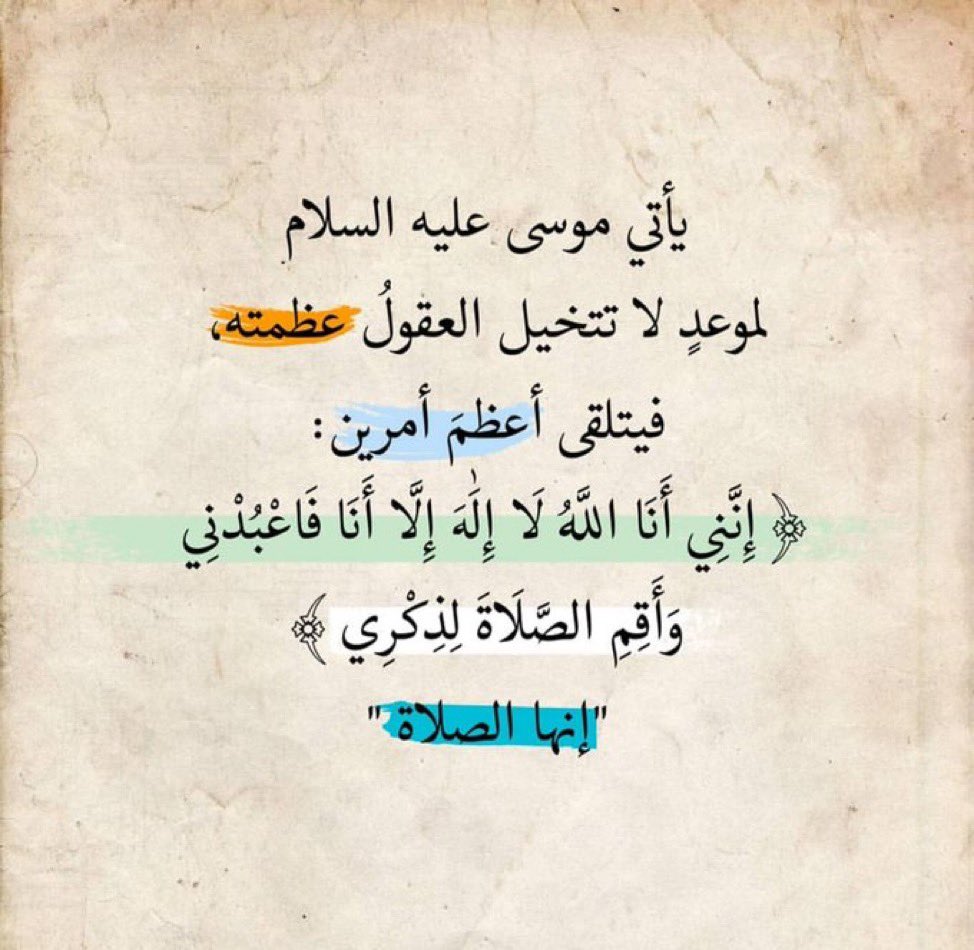 يأتي موسى عليه السلام
لموعدٍ لا تتخيل العقولُ عظمته،
فيتلقى أعظمَ أمرين :
﴿ إِنَّنِي أَنَا اللَّهُ لَا إِلَٰهَ إِلَّا أَنَا فَاعْبُدْنِي
وَأَقِمِ الصَّلَاةَ لِذِكْرِي ﴾
"إنها الصلاة "